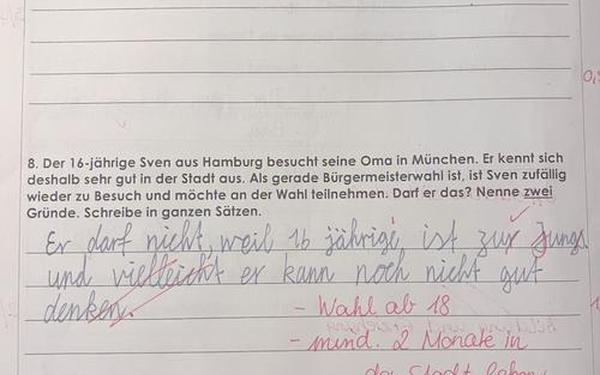 8. Der 16-jährige Sven aus Hamburg besucht seine Oma in München. Er kennt sich
deshalb sehr gut in der Stadt aus. Als gerade Bürgermeisterwahl ist, ist Sven zufällig
wieder zu Besuch und möchte an der Wahl teilnehmen. Darf er das? Nenne zwei
Gründe. Schreibe in ganzen Sätzen.
Er darf nicht, weil 16 jährige, ist zur Jungs
und vielleicht er kann noch nicht gut
denken.
- Wahl ab 18
- mind. 2 Monate in
der Stadt leben